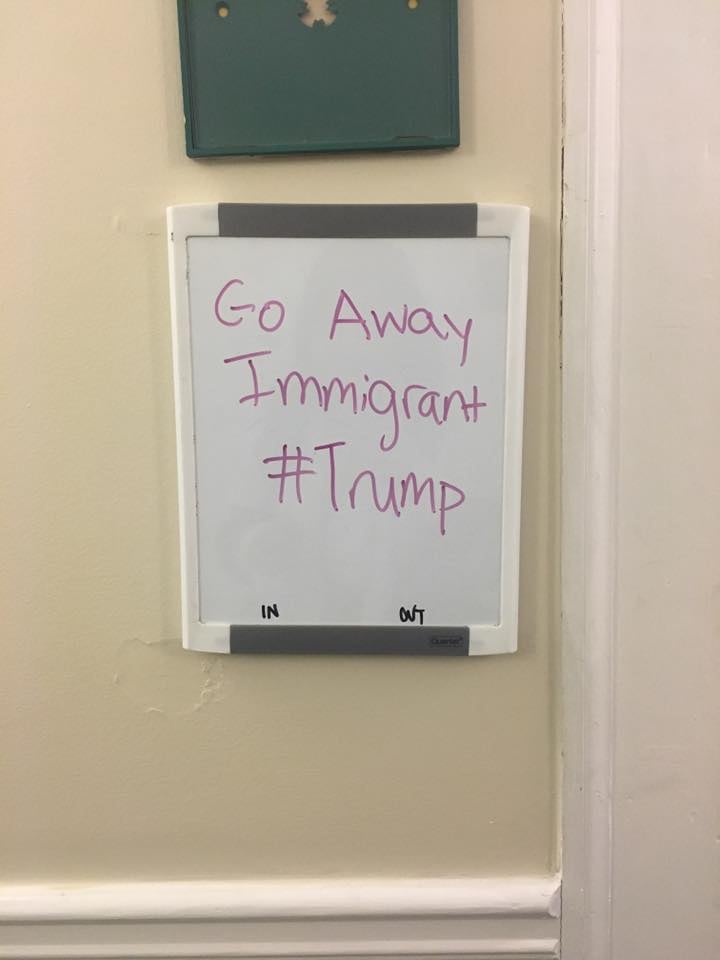 Go Away
Immigrant
#Trump
IN OUT
Quartet